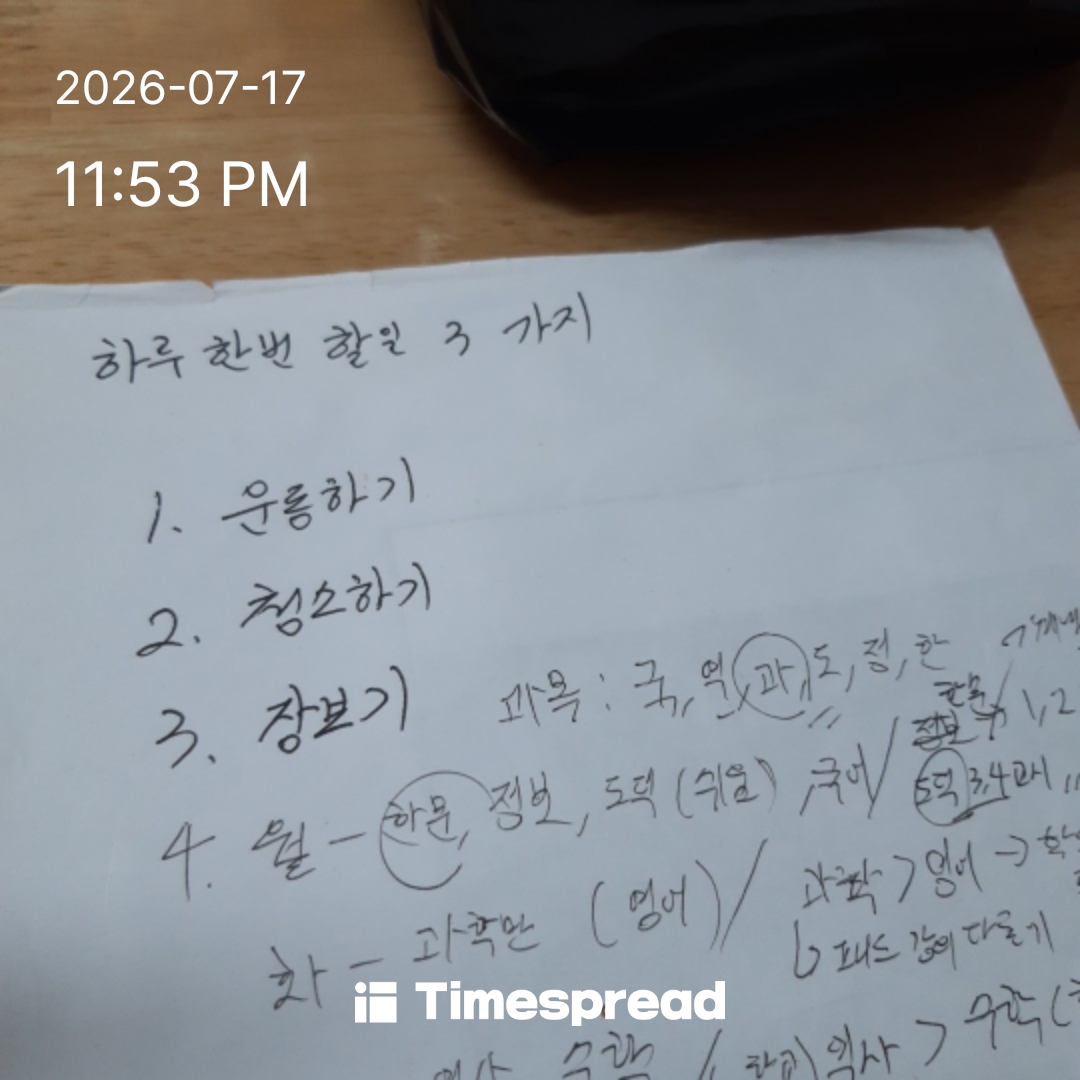 2026-07-17
11:53 PM
하루 한번 할일 3 가지
1. 운동하기
2. 청소하기
3. 장보기
과목 : 국, 역, 과, 도, 정, 한
한문 / 1, 2
4. 월 - 한문, 정보, 도덕 (쉬움), 국어 / 도덕 3,4교시
화 - 과학만 (영어) / 과학 > 영어 →
수학 / 역사 > 수학 (
Timespread